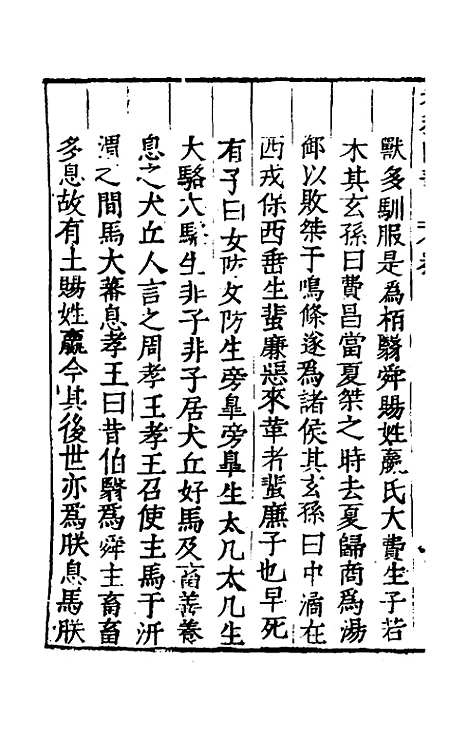 獸多馴服是為栢翳舜賜姓嬴氏大費生子若
木其玄孫曰費昌當夏桀之時去夏歸商為湯
御以敗桀于鳴條遂為諸侯其玄孫曰中潏在
西戎保西垂生蜚廉惡來革者蜚廉子也早死
有子曰女防女防生旁皐旁皐生太几太几生
大駱大駱生非子非子居犬丘好馬及畜善養
息之犬丘人言之周孝王孝王召使主馬于汧
渭之間馬大蕃息孝王曰昔伯翳為舜主畜畜
多息故有土賜姓嬴今其後世亦為朕息馬朕